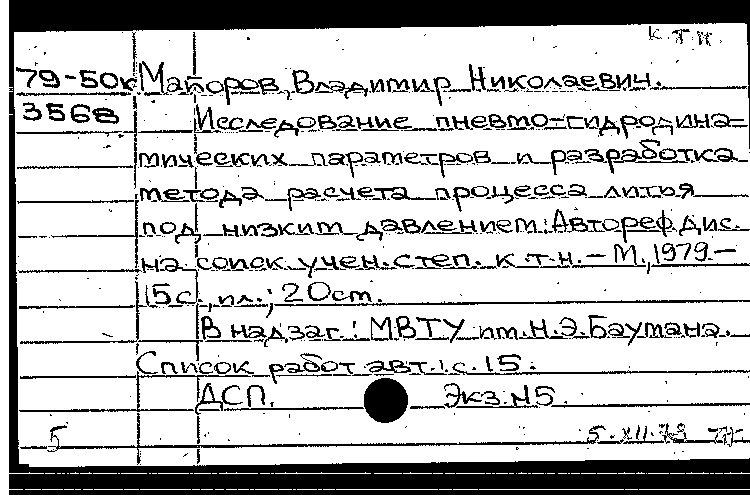 к.т.н.
79-50к Майоров, Владимир Николаевич.
3568 Исследование пневмо-гидродина-
мических параметров и разработка
метода расчета процесса литья
под низким давлением: Автореф. дис.
на соиск. учен. степ. к.т.н. – М., 1979. –
15 с., ил.; 20 см.
В надзаг.: МВТУ им. Н.Э. Баумана.
Список работ авт.: с. 15.
ДСП. Экз. №5.
5 5.XII.79